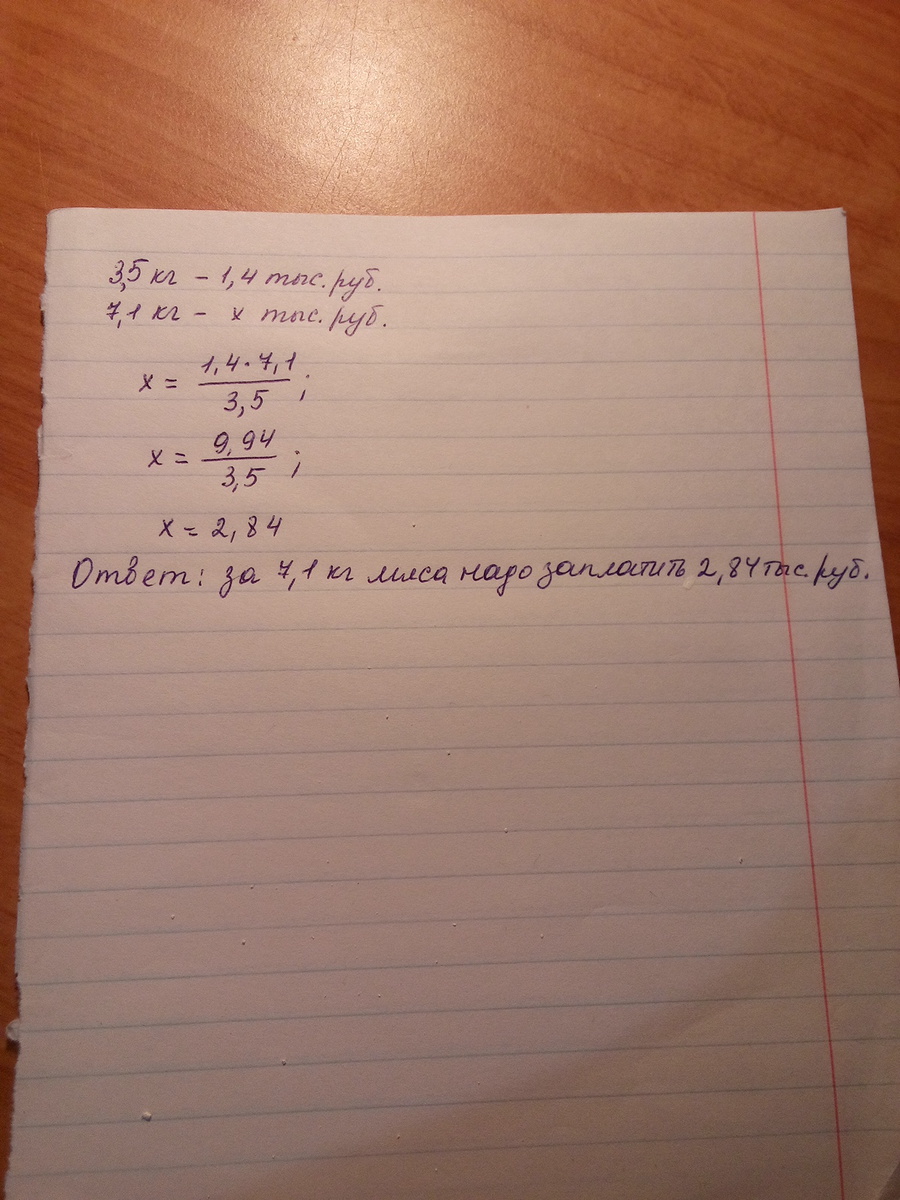 3,5 кг - 1,4 тыс. руб.
7,1 кг - x тыс. руб.
x = 1,4 · 7,1 / 3,5 ;
x = 9,94 / 3,5 ;
x = 2,84
Ответ: за 7,1 кг мяса надо заплатить 2,84 тыс. руб.